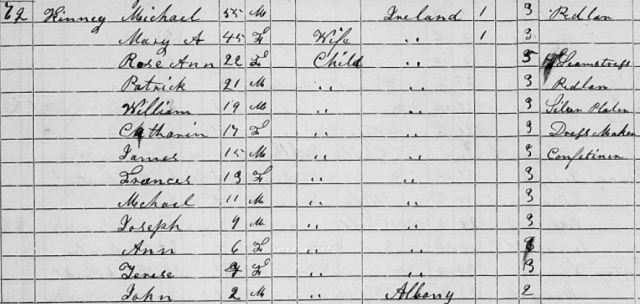 72 Kinney Michael 55 M Ireland 1 3 Pedlar
Mary A 45 F Wife " 1 3
Rose Ann 22 F Child " 3 Seamstress
Patrick 21 M " " 3 Pedlar
William 19 M " " 3 Silver Plater
Catharin 17 F " " 3 Dress Maker
James 15 M " " 3
Frances 13 F " " 3
Michael 11 M " " 3
Joseph 9 M " " 3
Ann 6 F " "
Terese F " " 3
John 2 M " Albany 2